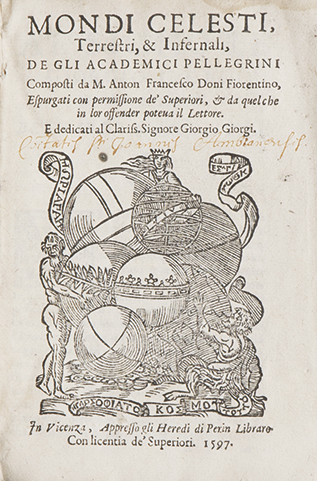 MONDI CELESTI,
Terrestri, & Infernali,
DE GLI ACADEMICI PELLEGRINI
Composti da M. Anton Francesco Doni Fiorentino,
Espurgati con permissione de' Superiori, & da quel che
in lor offender poteua il Lettore.
E dedicati al Clariss. Signore Giorgio Giorgi.
ΚΟΣΜΟΤ
In Vicenza, Appresso gli Heredi di Perin Libraro
Con licentia de' Superiori. 1597.